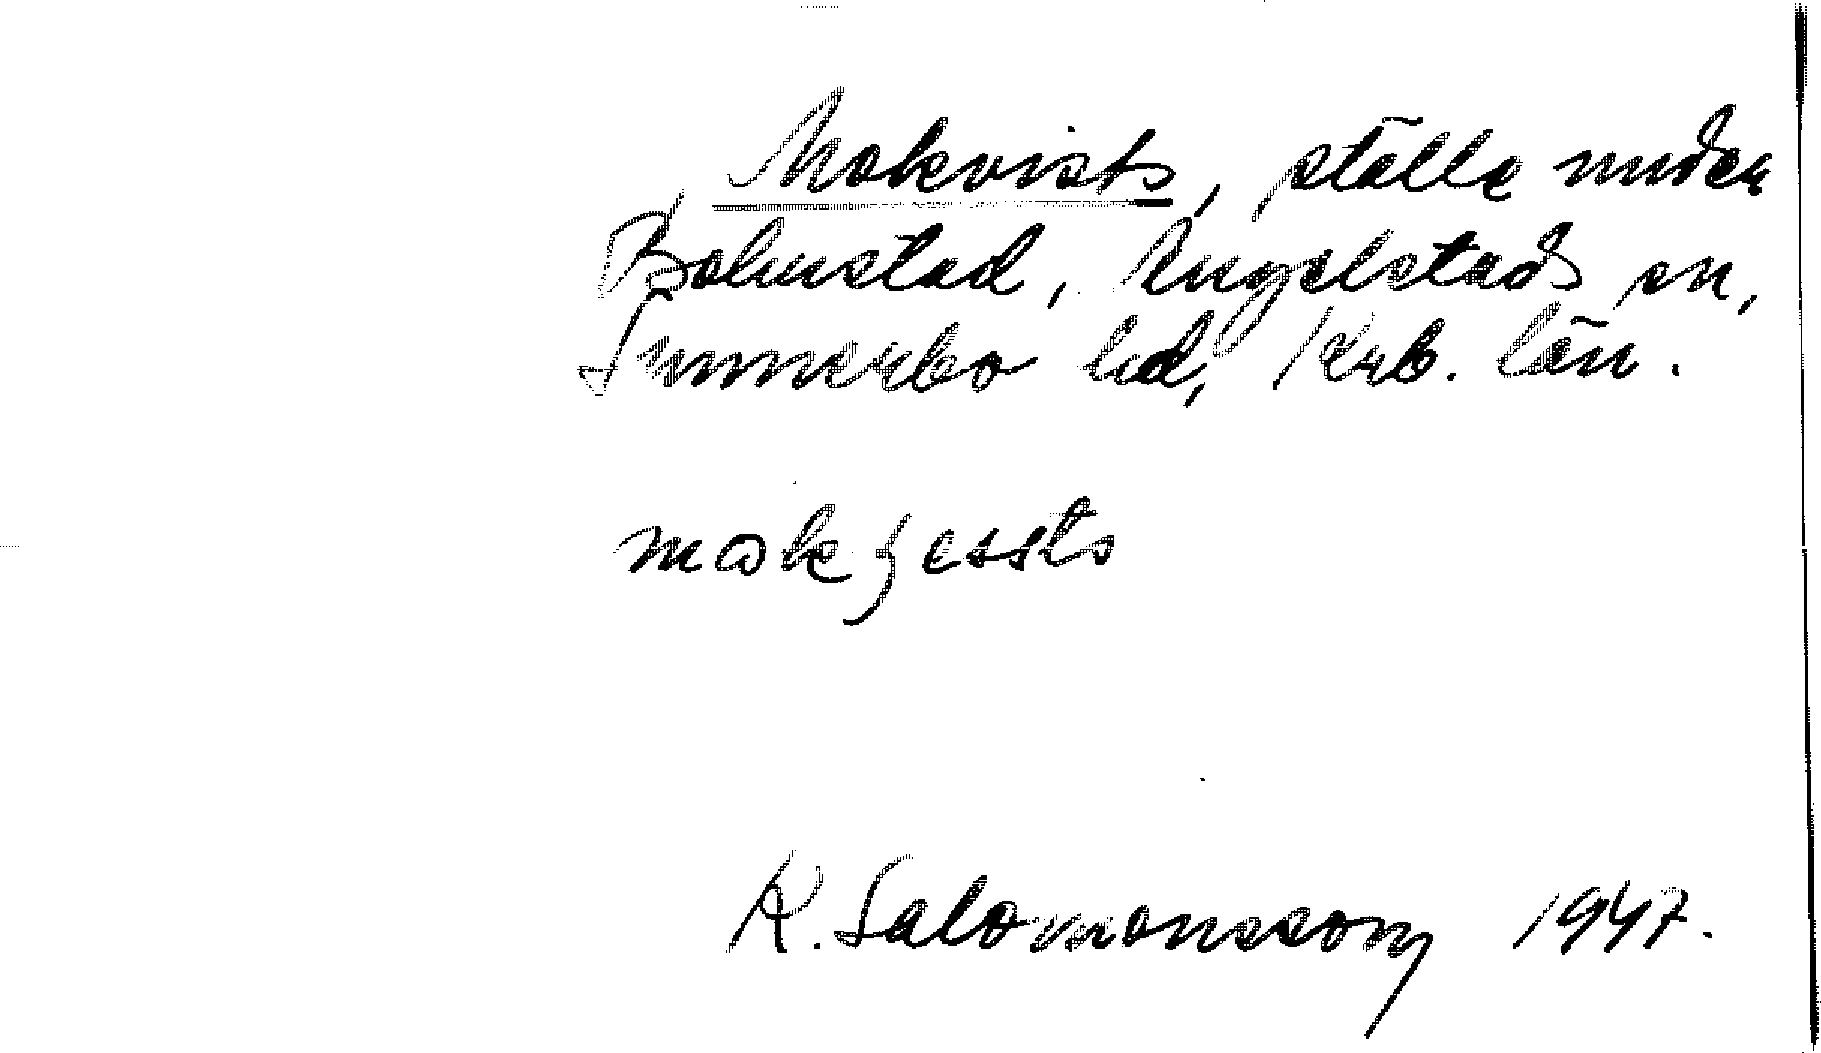 Mokvists, ställe under
Bolmstad, Angelstads sn,
Sunnerbo hd, Krb. län.
K. Salomonsson 1947.